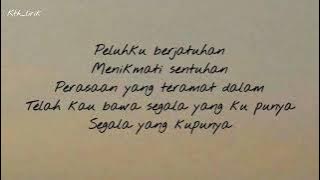 Kth_lirik
Peluhku berjatuhan
Menikmati sentuhan
Perasaan yang teramat dalam
Telah kau bawa segala yang ku punya
Segala yang kupunya